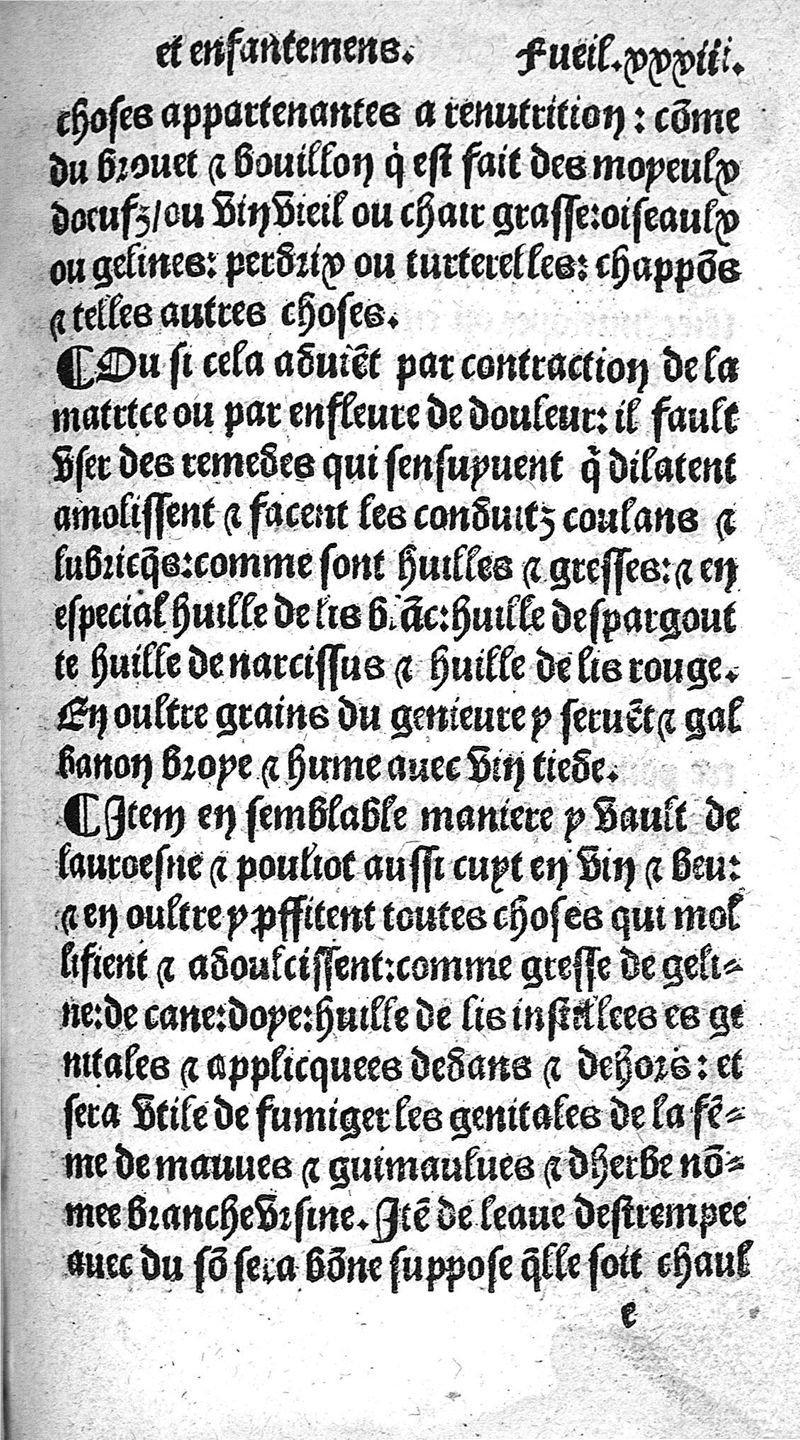 et enfantemens. Fueil.xxxiii.
choses appartenantes a renutrition : cõme
du brouet ⁊ bouillon q̇ est fait des moyeulx
doeufz/ou vin vieil ou chair grasse:oiseaulx
ou gelines: perdrix ou turterelles: chappõs
⁊ telles autres choses.
¶Ou si cela aduiẽt par contraction de la
matrice ou par enfleure de douleur: il fault
vser des remedes qui sensuyuent q̇ dilatent
amolissent ⁊ facent les conduitz coulans ⁊
lubricq̃s:comme sont huilles ⁊ gresses:⁊ en
especial huille de lis blãc:huille despargout
te huille de narcissus ⁊ huille de lis rouge.
En oultre grains du genieure y seruẽt ⁊ gal
banon broye ⁊ hume auec vin tiede.
¶Item en semblable maniere y vault de
lauroesne ⁊ pouliot aussi cuyt en vin ⁊ beu:
⁊ en oultre y ꝓffitent toutes choses qui mol
lifient ⁊ adoulcissent:comme gresse de geli-
ne:de cane:doye:huille de lis instalees es ge
nitales ⁊ applicquees dedans ⁊ dehors: et
sera vtile de fumiger les genitales de la fẽ-
me de mauues ⁊ guimaulues ⁊ dherbe nõ-
mee branche vrsine. Itẽ de leaue destrempee
auec du sõ sera bõne suppose q̃lle soit chaul
e